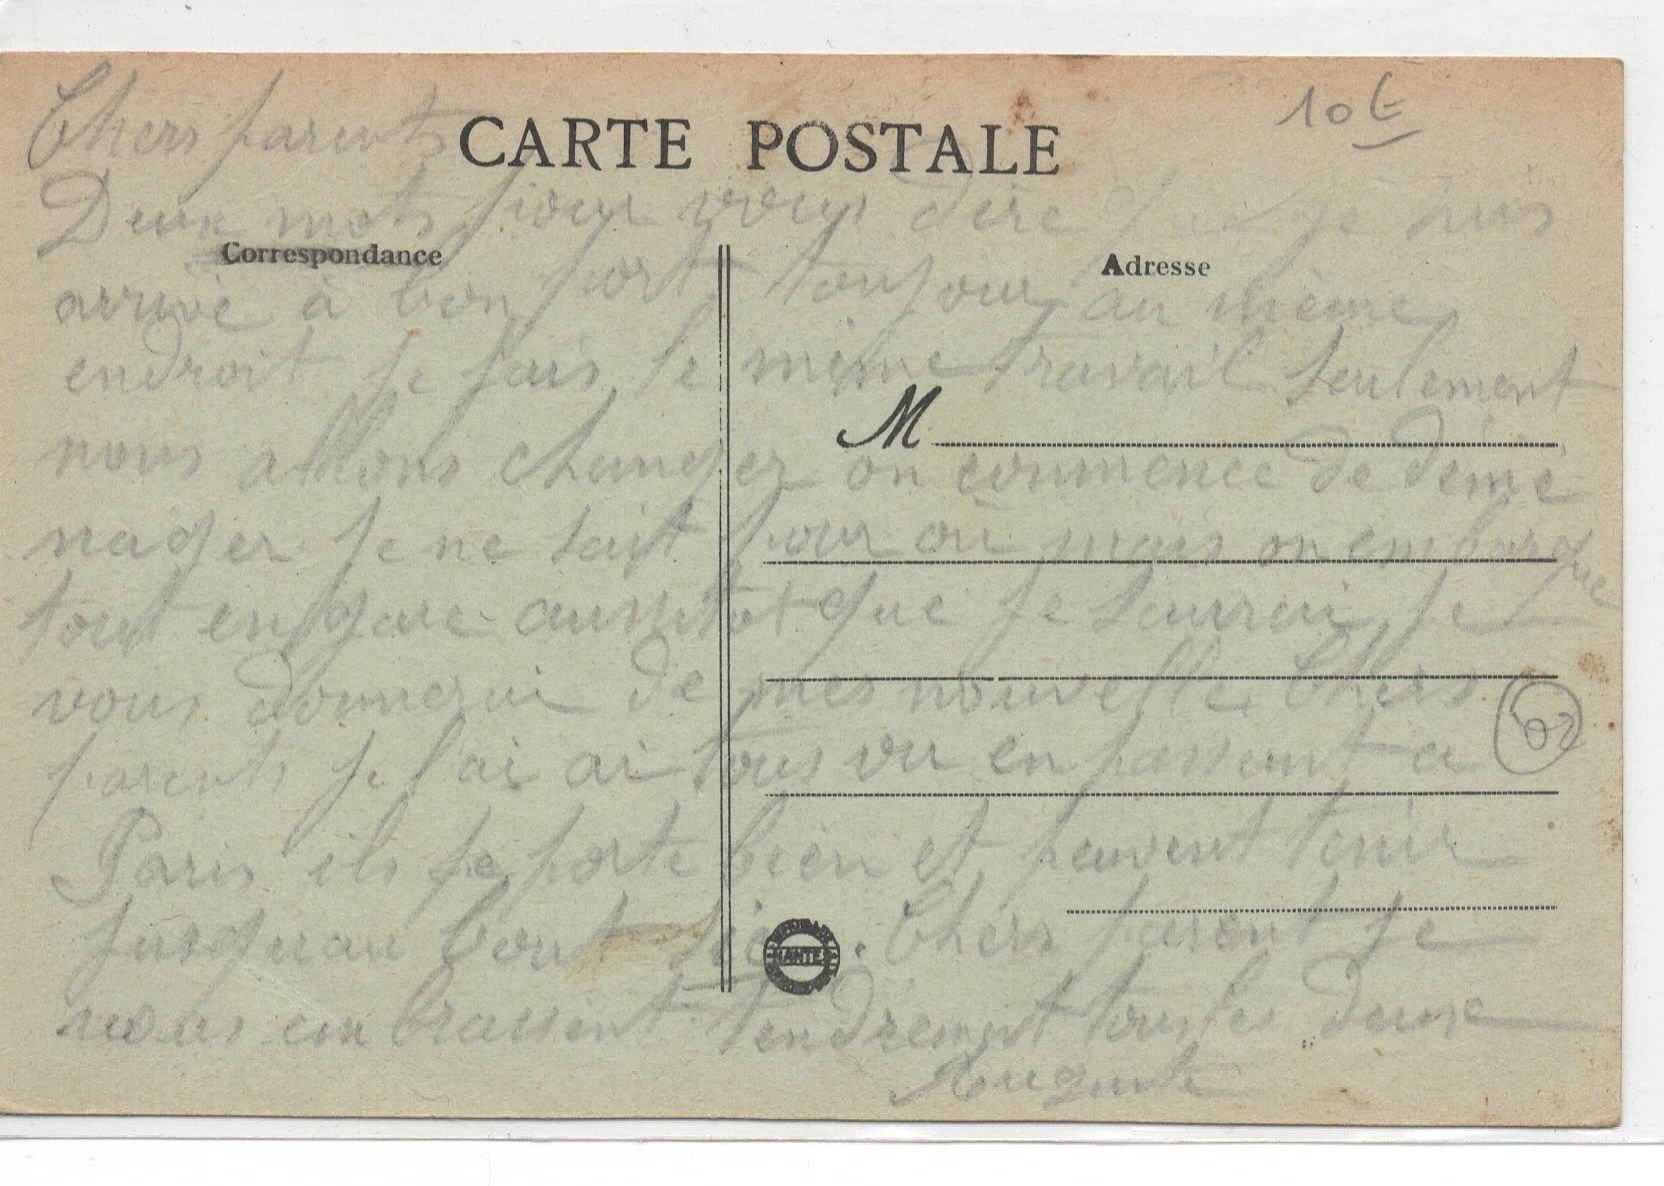 10 €
Chers parents
CARTE POSTALE
Deux mots pour vous dire que je suis
Correspondance
Adresse
arrivé à bon port toujour au même
endroit je fais le même travail seulement
M
nous allons changer on commence de démé
nager je ne sait pour où mais on embarque
tout en gare aussitot que je saurai je
vous donnerai de mes nouvelle Chers
02
parents je lai ai tous vu en passant a
Paris ils se porte bien et peuvent tenir
jusquau bout . Chers parent je
NANTES
vous embrassent tendrement tous les deux
Auguste